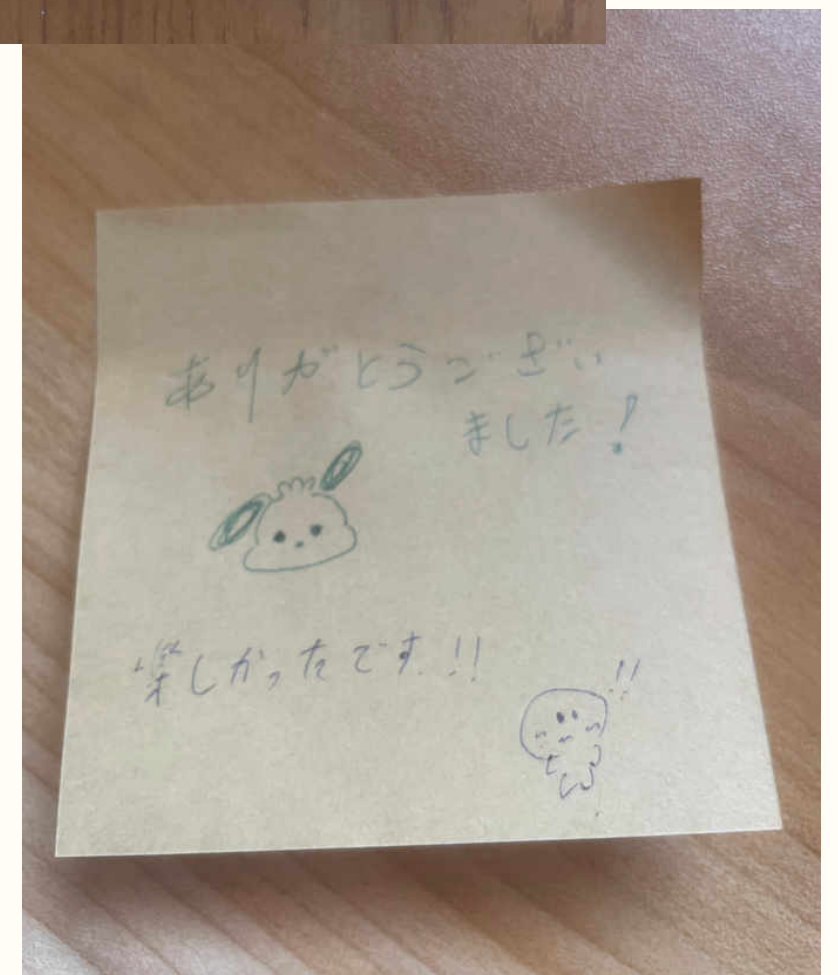 ありがとうござい
ました!
楽しかったです!!
!!